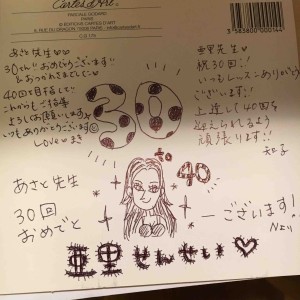 Cartes d'Art
PASCALE GODARD
PARIS
© EDITIONS CARTES D'ART
9 RUE DU DRAGON 75006 PARIS
3 583780 000144
あさと先生♡♡
30さい!!おめでとうございます!!
40回を目指して!!
これからもご指導
よろしくお願いします☆
いつもありがとうございます☺
Love♡まき
30
先生♡
祝30回!!
いつもレッスンありがとう
ございます!
上達して40回を
迎えられるよう
頑張ります!!
to
40
あさと先生
30回
おめでと
ーございます!
せんせい♡